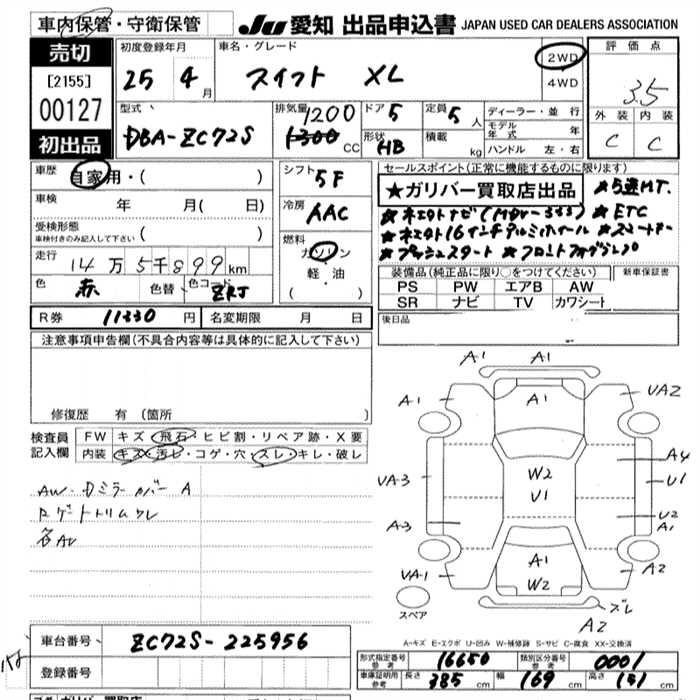 車内保管・守衛保管
JU 愛知 出品申込書 JAPAN USED CAR DEALERS ASSOCIATION
売切
[2155]
00127
初出品
初度登録年月
25 4月
車名・グレード
スイフト XL
2WD
4WD
評価点
3.5
外装 内装
C C
型式
DBA-ZC72S
排気量
1200
1300 CC
形状
HB
ドア
5
定員
5人
積載
kg
ディーラー・並行
モデル年式 年
ハンドル 左・右
車歴
自家用・( )
車検
年 月( 日)
受検形態
車検付きのみ記入して下さい ( )
走行
14万5千899km
色
赤
色替
色コード
ZRJ
シフト
5F
冷房
AAC
燃料
ガソリン
軽・油
( )
セールスポイント(正常に機能するものに限ります)
★ガリバー買取店出品
★5速MT.
★ETC
★プッシュスタート ★フロントフォグランプ
装備品(純正品に限り○をつけてください)
新車保証書
PS PW エアB AW
SR ナビ TV カワシート
R券 11330円
名変期限 月 日
後日品
注意事項申告欄(不具合内容等は具体的に記入して下さい)
修復歴 有 (箇所
検査員記入欄
FW キズ・飛石・ヒビ割・リペア跡・X要
内装 キズ・汚レ・コゲ・穴・スレ・キレ・破レ
AW・Dミラーカバー A
Rゲートトリムワレ
各AU
A1 A1
A1 A1 UA2
A4
UA3 W2 U1
U1
A3 U2
A1
A1
UA1 W2 A2
スペア
ズレ
A2
A-キズ E-エクボ U-凹み W-補修跡 S-サビ C-腐食 XX-交換済
車台番号 ZC72S-225956
登録番号
形式指定番号 参考 16650
類別区分番号 参考 0001
車庫証明用 参考 長さ 385cm 幅 169cm 高さ 151cm
ガリバー買取店